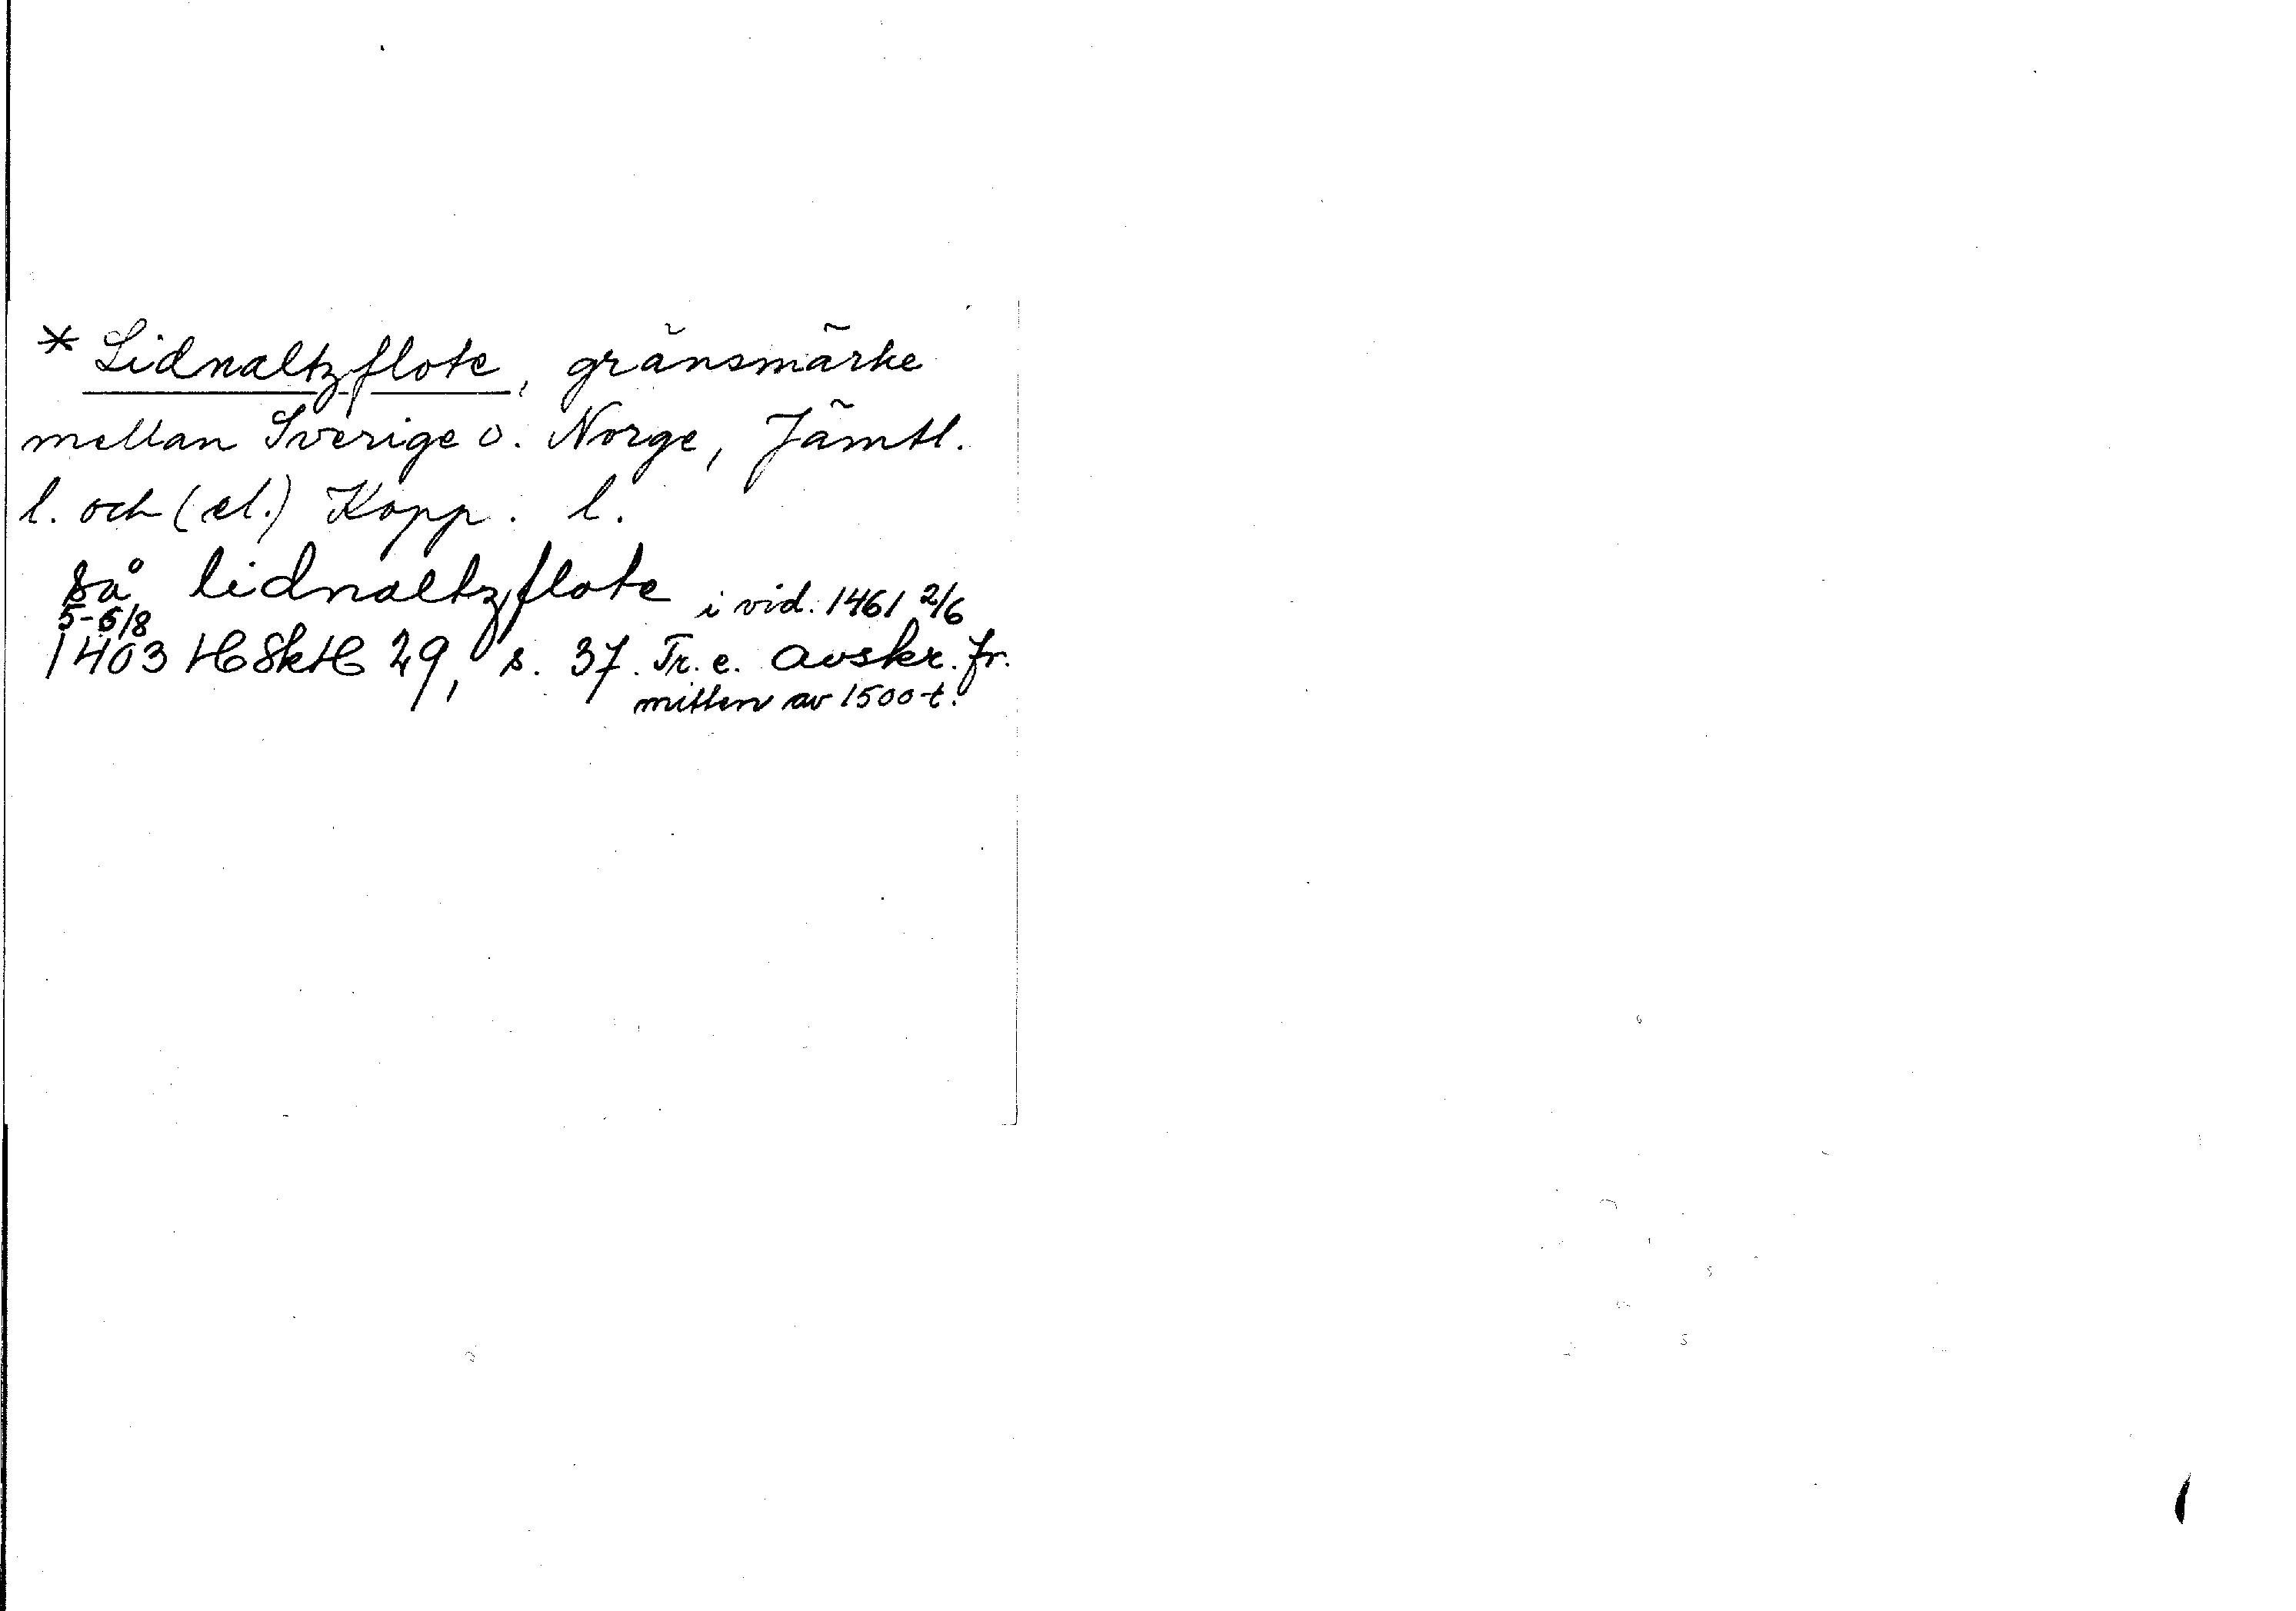 * Lidnaltzflote, gränsmärke
mellan Sverige o. Norge, Jämtl.
l. och (el.) Kopp. l.
så lidnaltzflote i vid. 1461 2/6
5-6/8
1403 HSkH 29, s. 37. Tr. e. avskr. fr.
mitten av 1500-t.